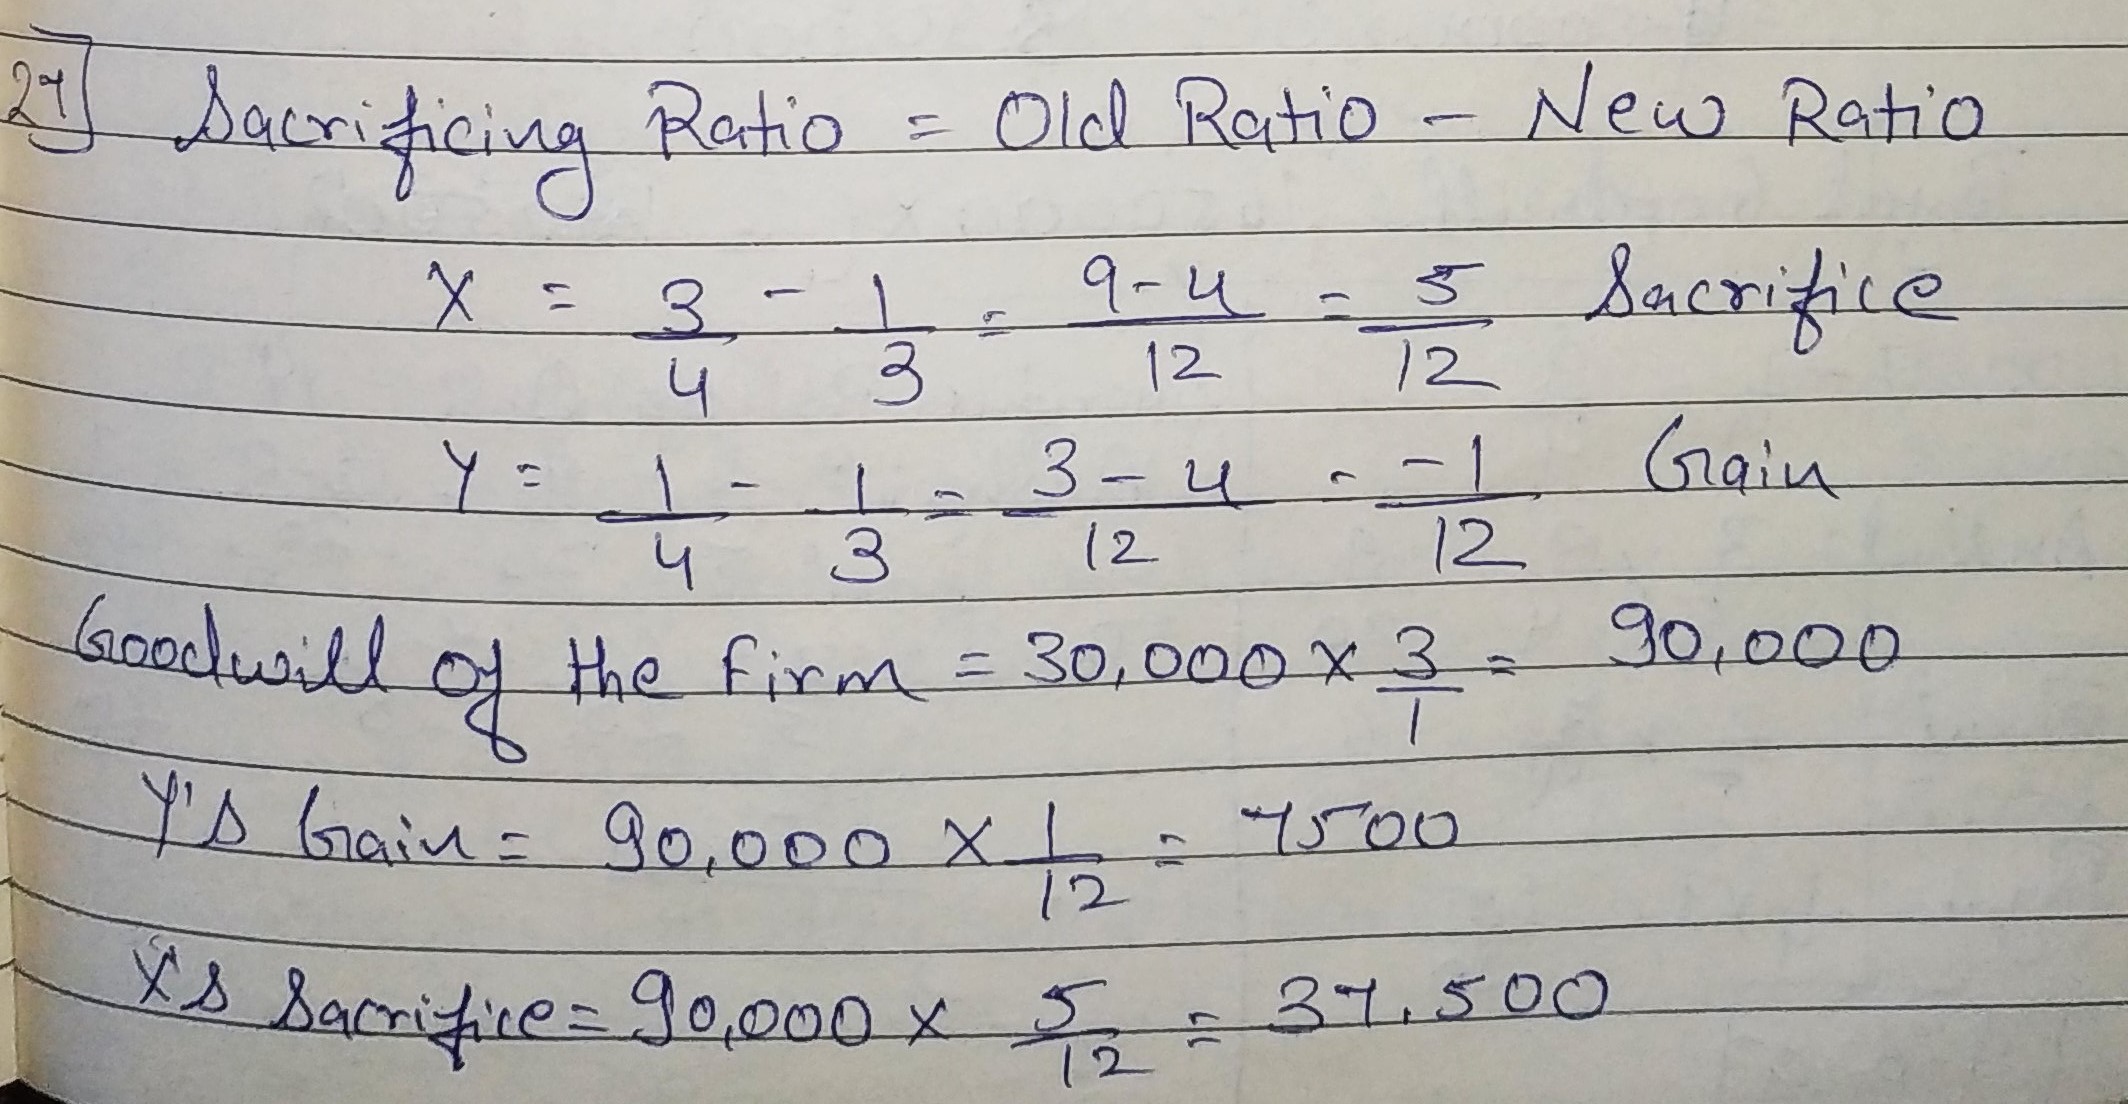 27 Sacrificing Ratio = Old Ratio - New Ratio
X = 3/4 - 1/3 = 9-4/12 = 5/12 Sacrifice
Y = 1/4 - 1/3 = 3-4/12 = -1/12 Gain
Goodwill of the firm = 30,000 x 3/1 = 90,000
Y's Gain = 90,000 x 1/12 = 7500
X's Sacrifice = 90,000 x 5/12 = 37,500